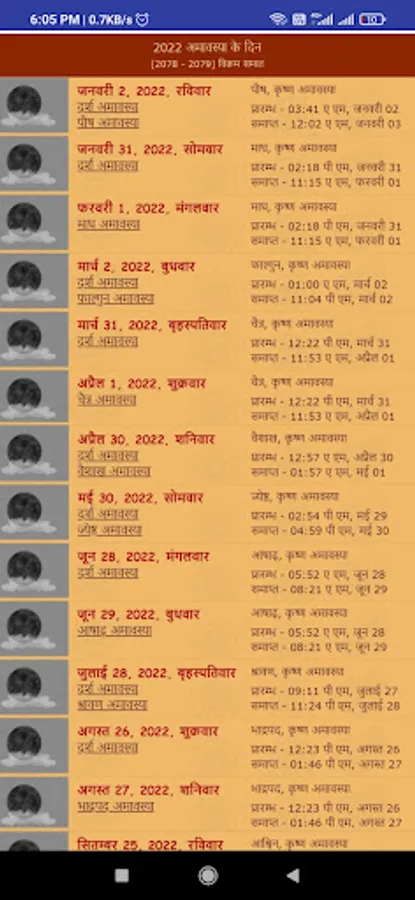 6:05 PM | 0.7KB/s
10
2022 अमावस्या के दिन
[2078 - 2079] विक्रम सम्वत
जनवरी 2, 2022, रविवार
दर्श अमावस्या
पौष अमावस्या
पौष, कृष्ण अमावस्या
प्रारम्भ - 03:41 ए एम, जनवरी 02
समाप्त - 12:02 ए एम, जनवरी 03
जनवरी 31, 2022, सोमवार
दर्श अमावस्या
माघ, कृष्ण अमावस्या
प्रारम्भ - 02:18 पी एम, जनवरी 31
समाप्त - 11:15 ए एम, फरवरी 01
फरवरी 1, 2022, मंगलवार
माघ अमावस्या
माघ, कृष्ण अमावस्या
प्रारम्भ - 02:18 पी एम, जनवरी 31
समाप्त - 11:15 ए एम, फरवरी 01
मार्च 2, 2022, बुधवार
दर्श अमावस्या
फाल्गुन अमावस्या
फाल्गुन, कृष्ण अमावस्या
प्रारम्भ - 01:00 ए एम, मार्च 02
समाप्त - 11:04 पी एम, मार्च 02
मार्च 31, 2022, बृहस्पतिवार
दर्श अमावस्या
चैत्र, कृष्ण अमावस्या
प्रारम्भ - 12:22 पी एम, मार्च 31
समाप्त - 11:53 ए एम, अप्रैल 01
अप्रैल 1, 2022, शुक्रवार
चैत्र अमावस्या
चैत्र, कृष्ण अमावस्या
प्रारम्भ - 12:22 पी एम, मार्च 31
समाप्त - 11:53 ए एम, अप्रैल 01
अप्रैल 30, 2022, शनिवार
दर्श अमावस्या
वैशाख अमावस्या
वैशाख, कृष्ण अमावस्या
प्रारम्भ - 12:57 ए एम, अप्रैल 30
समाप्त - 01:57 ए एम, मई 01
मई 30, 2022, सोमवार
दर्श अमावस्या
ज्येष्ठ अमावस्या
ज्येष्ठ, कृष्ण अमावस्या
प्रारम्भ - 02:54 पी एम, मई 29
समाप्त - 04:59 पी एम, मई 30
जून 28, 2022, मंगलवार
दर्श अमावस्या
आषाढ़, कृष्ण अमावस्या
प्रारम्भ - 05:52 ए एम, जून 28
समाप्त - 08:21 ए एम, जून 29
जून 29, 2022, बुधवार
आषाढ़ अमावस्या
आषाढ़, कृष्ण अमावस्या
प्रारम्भ - 05:52 ए एम, जून 28
समाप्त - 08:21 ए एम, जून 29
जुलाई 28, 2022, बृहस्पतिवार
दर्श अमावस्या
श्रावण अमावस्या
श्रावण, कृष्ण अमावस्या
प्रारम्भ - 09:11 पी एम, जुलाई 27
समाप्त - 11:24 पी एम, जुलाई 28
अगस्त 26, 2022, शुक्रवार
दर्श अमावस्या
भाद्रपद, कृष्ण अमावस्या
प्रारम्भ - 12:23 पी एम, अगस्त 26
समाप्त - 01:46 पी एम, अगस्त 27
अगस्त 27, 2022, शनिवार
भाद्रपद अमावस्या
भाद्रपद, कृष्ण अमावस्या
प्रारम्भ - 12:23 पी एम, अगस्त 26
समाप्त - 01:46 पी एम, अगस्त 27
सितम्बर 25, 2022, रविवार
आश्विन, कृष्ण अमावस्या